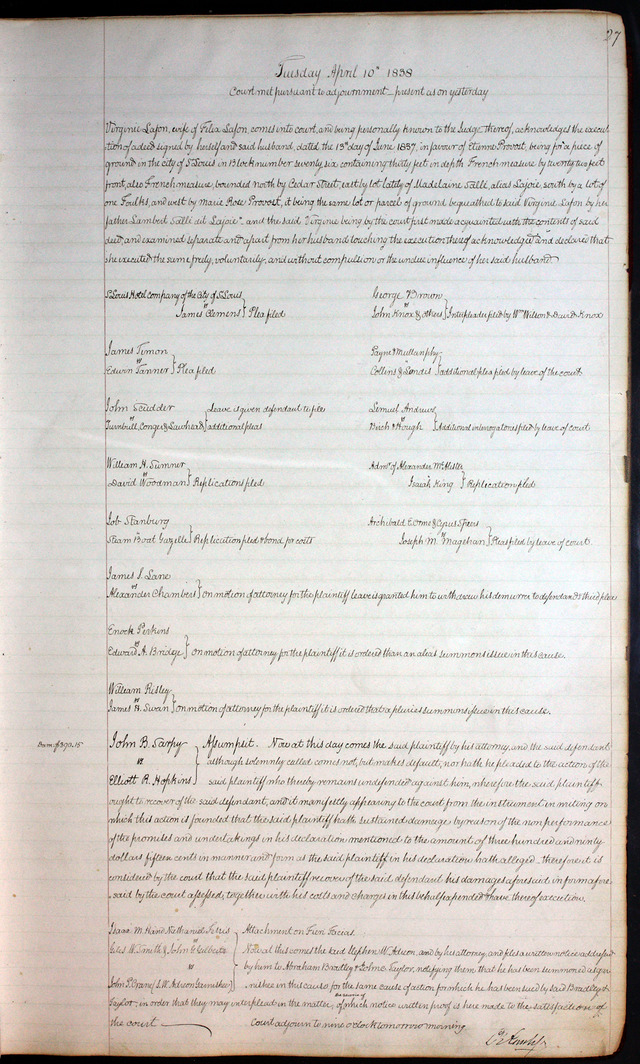 27
Tuesday April 10th 1838
Court met pursuant to adjournment present as on yesterday
Virginie Lafon, wife of Felix Lafon, comes into court, and being personally known to the Judge thereof, acknowledges the execu
tion of a deed signed by herself and said husband, dated the 13th day of June 1837, in favour of Etienne Provost, being for a piece of
ground in the city of St Louis in Block number seventy six containing thirty feet in depth French measure by twenty two feet
front, also French measure, bounded north by Cedar Street, east by lot lately of Madelaine Salli alias Lajoie, south by a lot of
one Foulks, and west by Marie Rose Provost, it being the same lot or parcel of ground bequeathed to said Virginie Lafon by her
father Lambert Salli dit Lajoie, and the said Virginie being by the court first made acquainted with the contents of said
deed, and examined separate and apart from her husband touching the execution thereof acknowledged and declared that
she executed the same freely, voluntarily, and without compulsion or the undue influence of her said husband
St Louis Hotel Company of the City of St Louis
vs
James Clemens } Plea filed
George Brown
vs
John Knox & others } Interpleader filed by Wm Wilson & David Knox
James Timon
vs
Edwin Tanner } Plea filed
Payne & Mullanphy
vs
Collins & } additional plea filed by leave of the court
John Scudder
vs
Turnbull, Conger & } Leave is given defendant to file additional pleas
Lemuel Andrews
vs
Birch & Hough } Additional interrogatories filed by leave of court
William H. Sumner
vs
David Woodman } Replications filed
Admr of Alexander McAlister
vs
Isaiah King } Replication filed
Job Stanburg
vs
Steam Boat Gazelle } Replication filed & bond for costs
Archibald E Orme & Cyrus
vs
Joseph M. Magehan } Pleas filed by leave of court.
James S. Lane
vs
Alexander Chambers } on motion of attorney for the plaintiff leave is granted him to withdrew his demurrer to defendants third plea
Enock Perkins
vs
Edward A. Bridge } on motion of attorney for the plaintiff it is ordered than an alias summons issue in this cause.
William Risley
vs
James H. Swan } on motion of attorney for the plaintiff it is ordered that a pluries summons issue in this cause.
John B. Sarpy } Assumpsit. Now at this day comes the said plaintiff by his attorney, and the said defendant
vs although solemnly called comes not, but makes default; nor hath he pleaded to the action of the
Elliott R. Hopkins } said plaintiff who thereby remains undefended against him, wherefore the said plaintiff
ought to recover of the said defendant, and it manifestly appearing to the court from the instrument in writing on
which this action is founded that the said plaintiff hath sustained damages by reason of the non performance
of the promises and undertakings in his declaration mentioned to the amount of three hundred and ninty
dollars fifteen cents in manner and form as the said plaintiff in his declaration hath alleged therefore it is
considered by the court that the said plaintiff recover of the said defendant his damages aforesaid in form afore
said by the court assessed, together with his costs and charges in this behalf expended & have thereof execution.
Isaac M. Nathaniel
Giles W. Smith & John G. } Attachment on Fieri Facias.
vs Now at this comes the said Stephen W. Adison, and by his attorney, and files a written notice addressed
John P. Crane / S. W. Adison Garnishee by him to Abraham Bradley & Taylor, notifying them that he has been summoned as gar
nishee in this cause for the same cause of action for which he has been sued by said Bradley &
Taylor, in order that they may interplead in the matter, of which notice written proof is here made to the satisfaction of
the court
Court adjourn to nine o'clock tomorrow morning